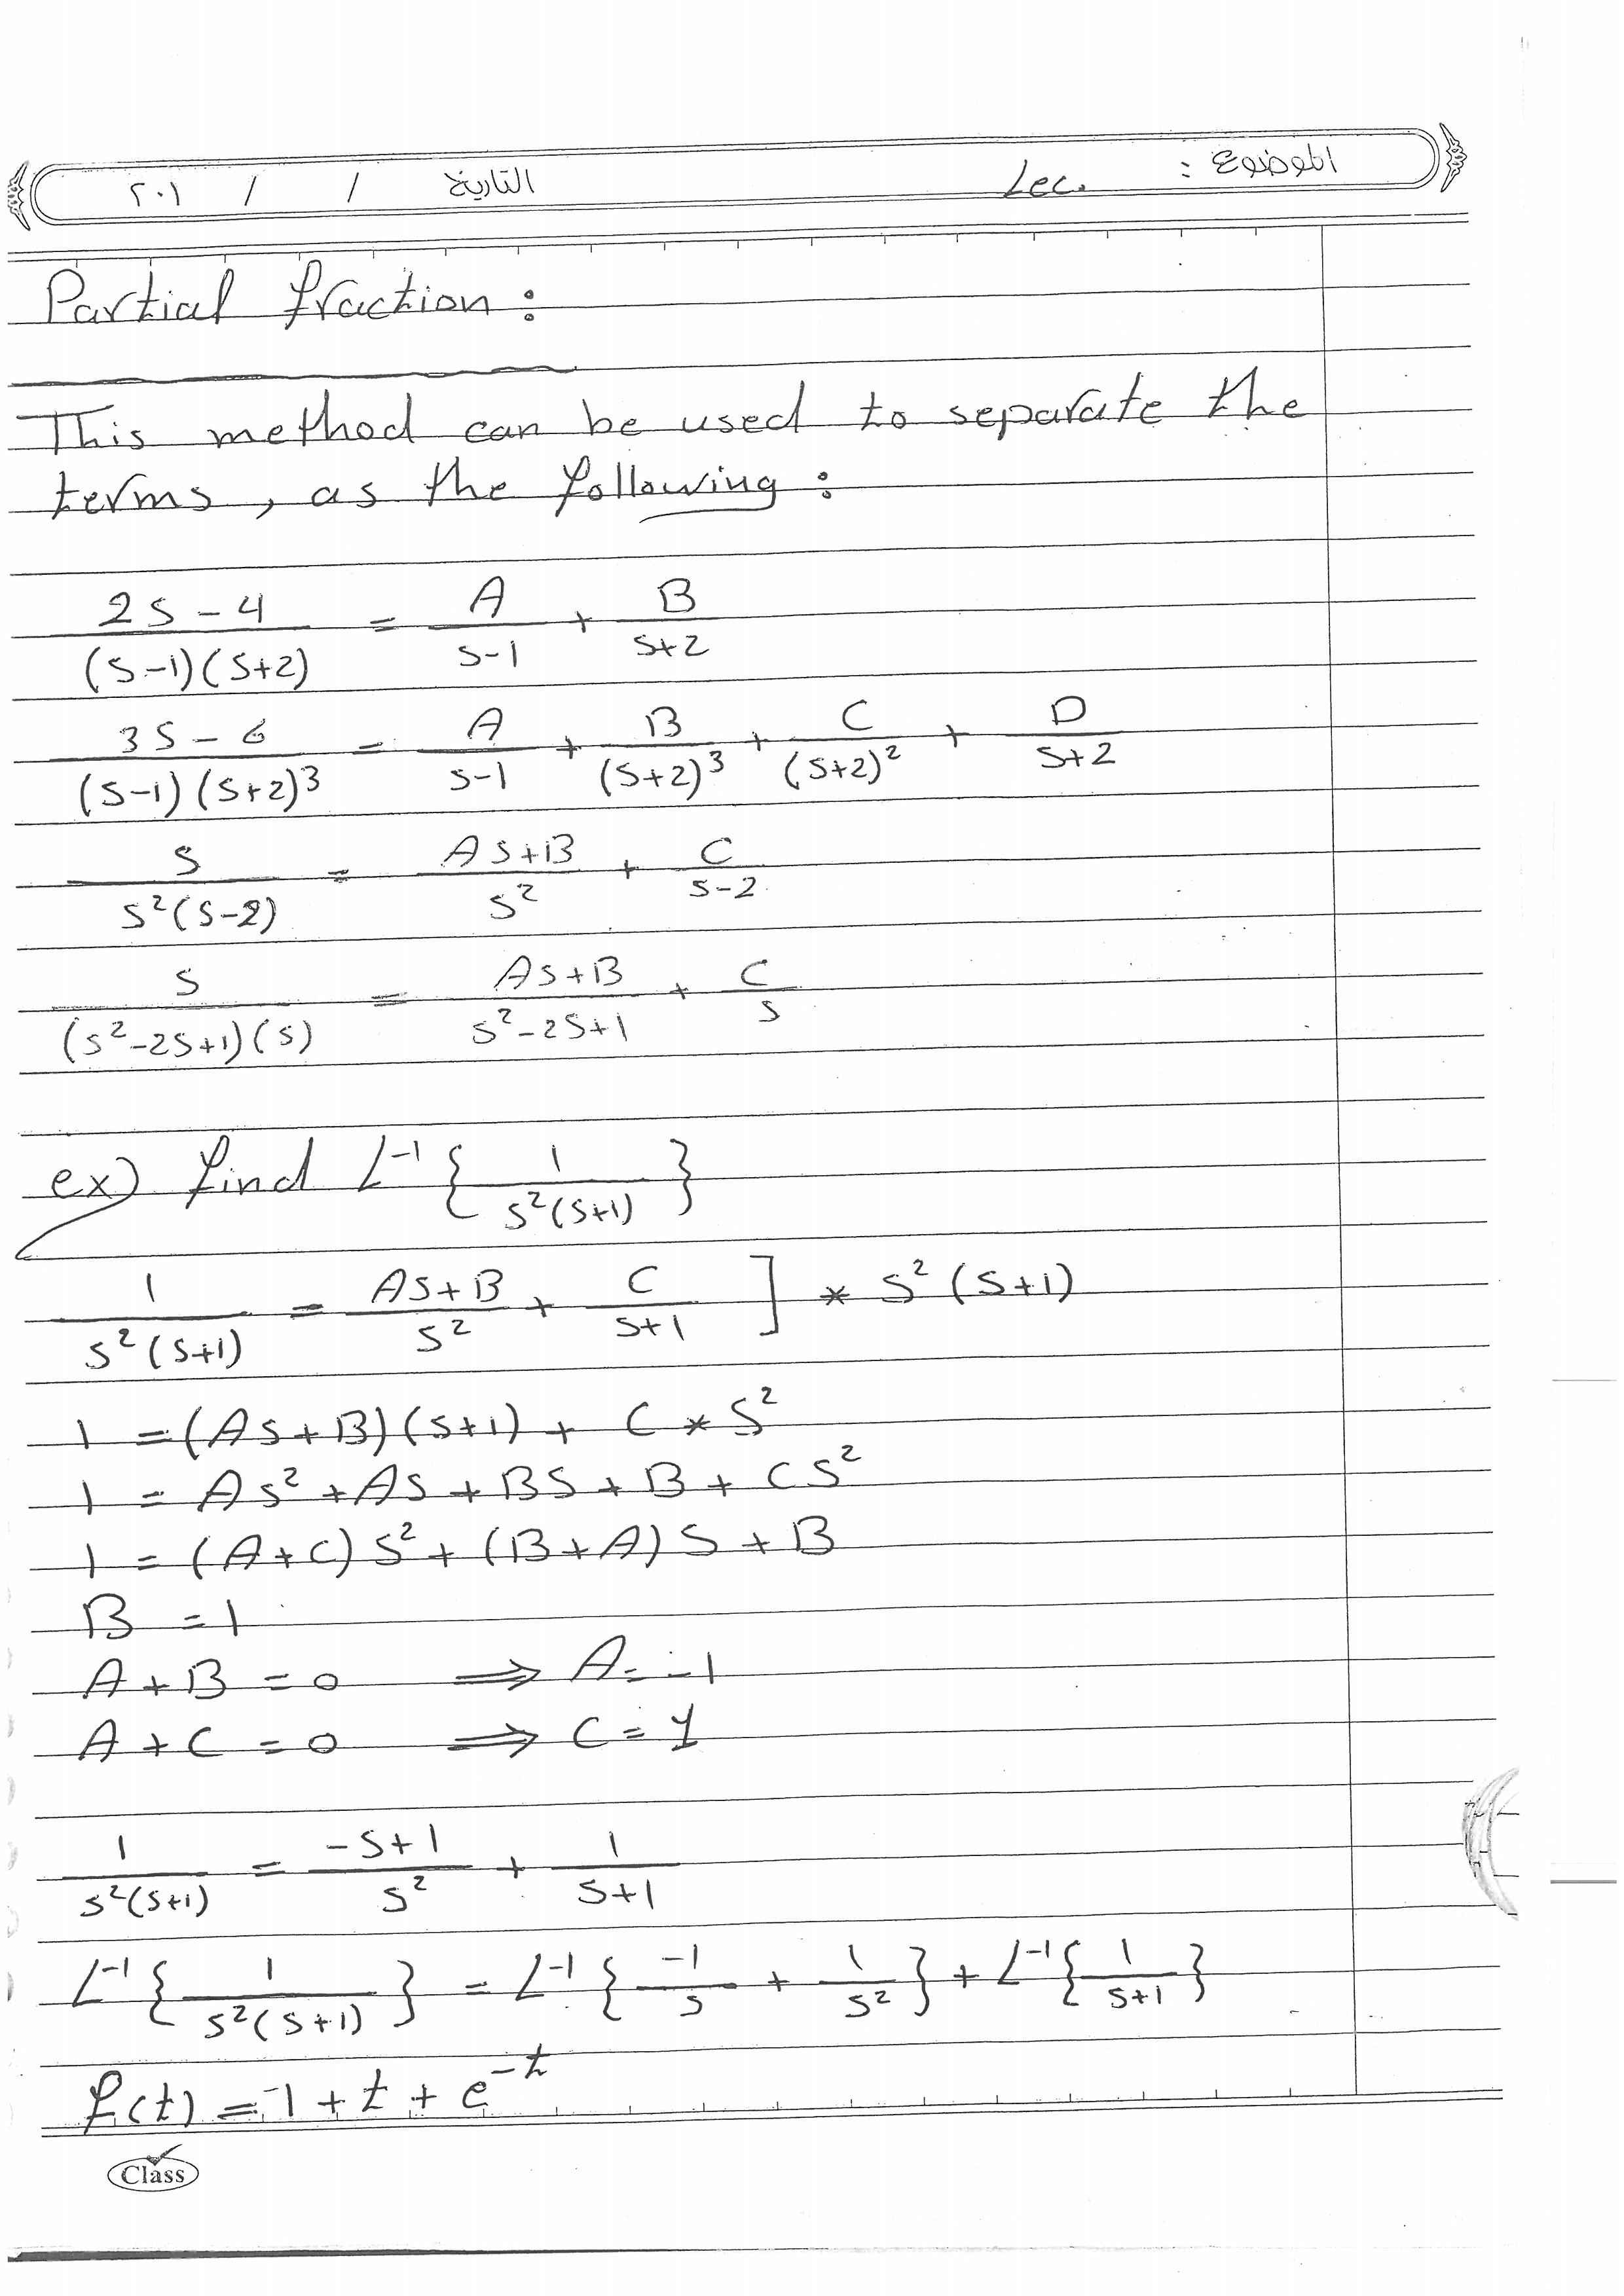 الموضوع : Lec. التاريخ / / ٢٠١
Partial fraction :
This method can be used to separate the
terms, as the following :
(2s-4)/((s-1)(s+2)) = A/(s-1) + B/(s+2)
(3s-6)/((s-1)(s+2)³) = A/(s-1) + B/(s+2)³ + C/(s+2)² + D/(s+2)
s/(s²(s-2)) = (As+B)/s² + C/(s-2)
s/((s²-2s+1)(s)) = (As+B)/(s²-2s+1) + C/s
ex) find L⁻¹ { 1/(s²(s+1)) }
1/(s²(s+1)) = (As+B)/s² + C/(s+1) ] * s²(s+1)
1 = (As+B)(s+1) + C * s²
1 = As² + As + Bs + B + Cs²
1 = (A+C)s² + (B+A)s + B
B = 1
A + B = 0 ⟹ A = -1
A + C = 0 ⟹ C = 1
1/(s²(s+1)) = (-s+1)/s² + 1/(s+1)
L⁻¹ { 1/(s²(s+1)) } = L⁻¹ { -1/s + 1/s² } + L⁻¹ { 1/(s+1) }
f(t) = -1 + t + e^-t
Class